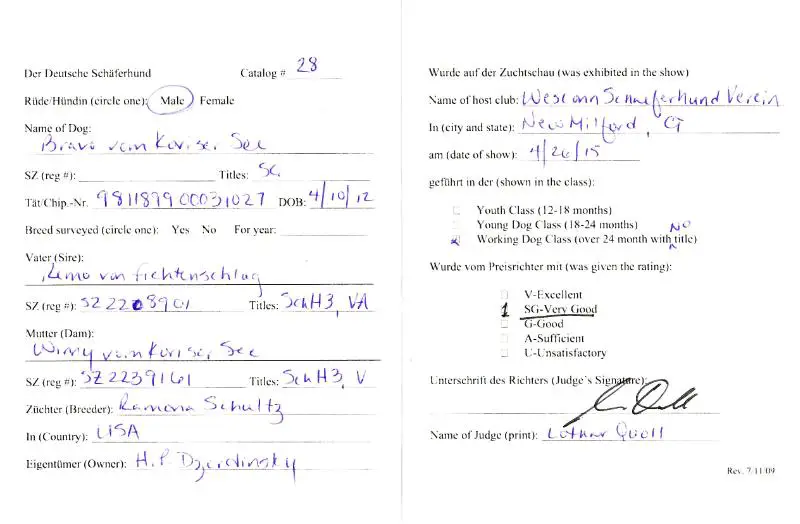 Der Deutsche Schäferhund Catalog # 28
Rüde/Hündin (circle one): Male Female
Name of Dog:
Bravo vom Koriser See
SZ (reg #): Titles: SG
Tät/Chip.-Nr. 981189900031027 DOB: 4/10/12
Breed surveyed (circle one): Yes No For year:
Vater (Sire):
Remo von Fichtenschlag
SZ (reg #): SZ 2208901 Titles: SchH3, VA
Mutter (Dam):
vom Koriser See
SZ (reg #): SZ2239161 Titles: SchH3, V
Züchter (Breeder): Ramona Schultz
In (Country): USA
Eigentümer (Owner): H. P.
Wurde auf der Zuchtschau (was exhibited in the show)
Name of host club: Wesconn Schaeferhund Verein
In (city and state): New Milford, CT
am (date of show): 4/26/15
geführt in der (shown in the class):
Youth Class (12-18 months)
Young Dog Class (18-24 months)
Working Dog Class (over 24 month with NO title)
Wurde vom Preisrichter mit (was given the rating):
V-Excellent
1 SG-Very Good
G-Good
A-Sufficient
U-Unsatisfactory
Unterschrift des Richters (Judge's Signature):
Name of Judge (print): Lothar Quoll
Rev. 7/11/09